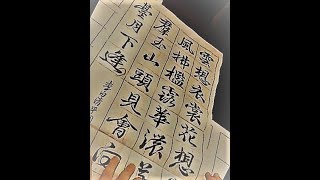 雲想衣裳花想
風拂檻露華濃
羣玉山頭見會向
臺月下逢